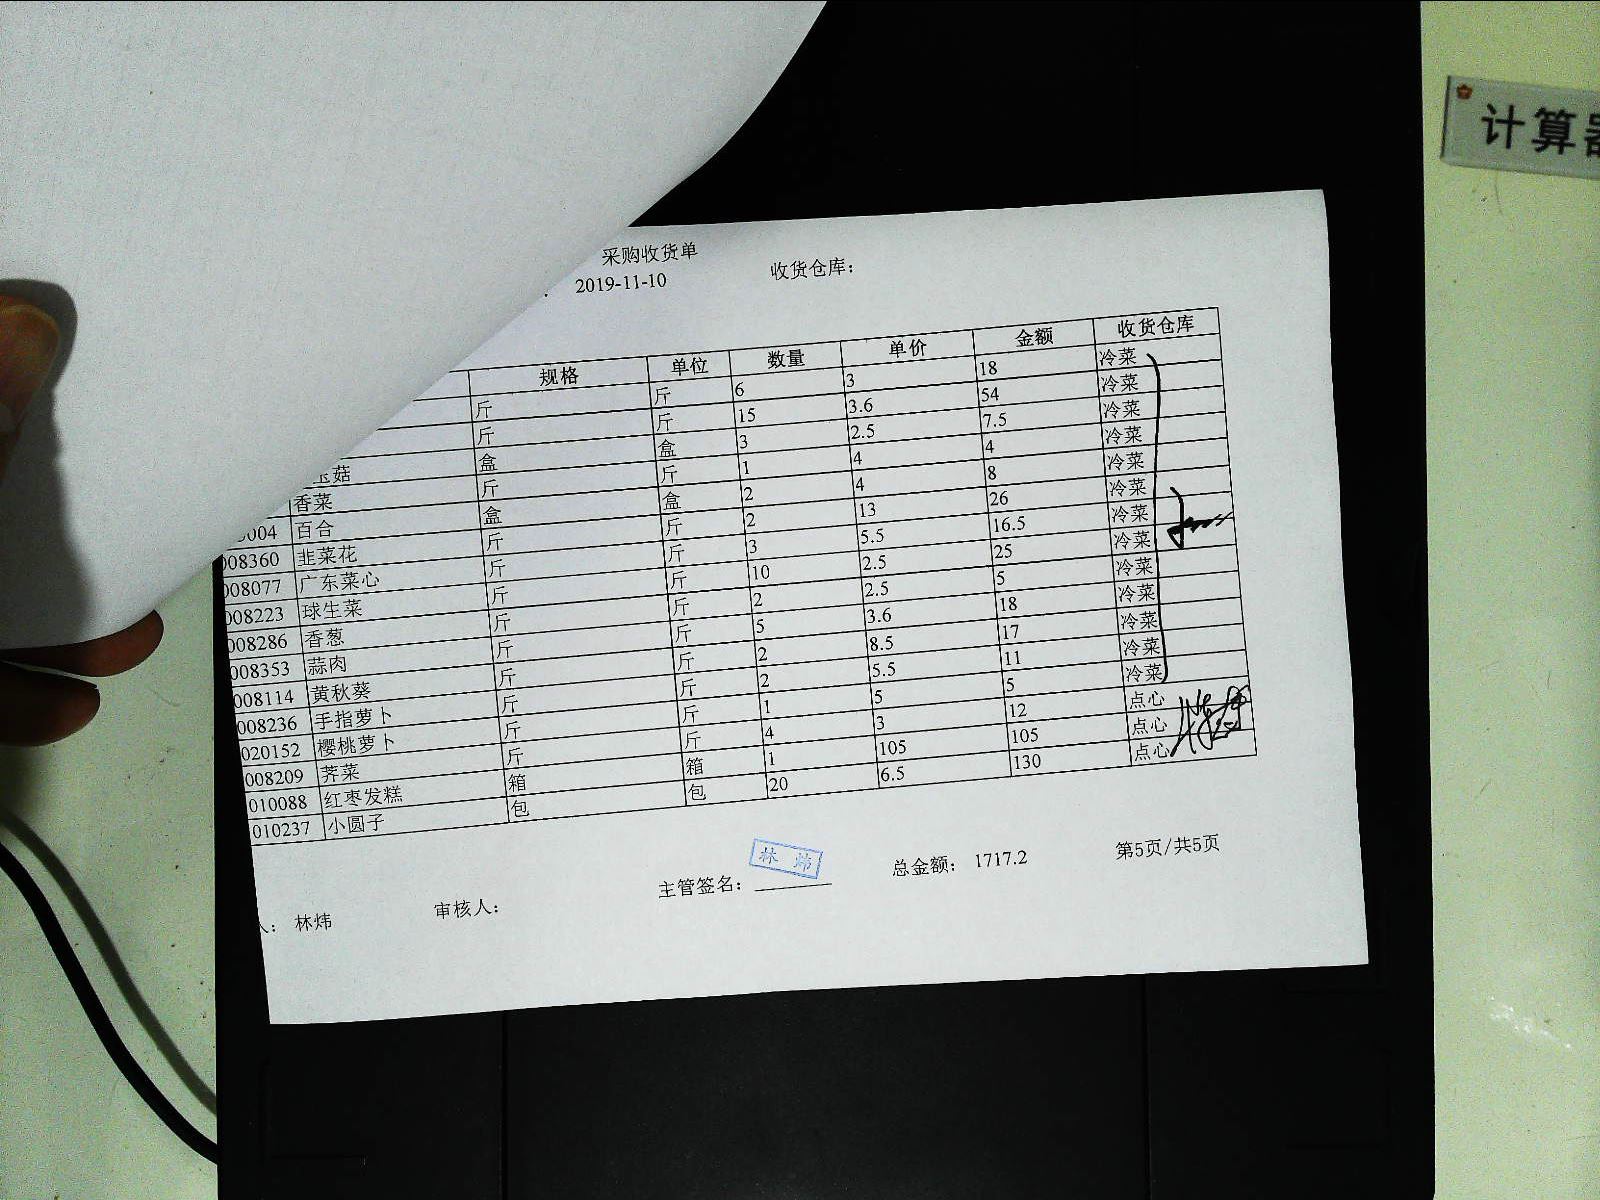 采购收货单
2019-11-10 收货仓库：
规格 单位 数量 单价 金额 收货仓库
斤 斤 6 3 18 冷菜
斤 斤 15 3.6 54 冷菜
菇 盒 盒 3 2.5 7.5 冷菜
香菜 斤 斤 1 4 4 冷菜
004 百合 盒 盒 2 4 8 冷菜
008360 韭菜花 斤 斤 2 13 26 冷菜
008077 广东菜心 斤 斤 3 5.5 16.5 冷菜
008223 球生菜 斤 斤 10 2.5 25 冷菜
008286 香葱 斤 斤 2 2.5 5 冷菜
008353 蒜肉 斤 斤 5 3.6 18 冷菜
008114 黄秋葵 斤 斤 2 8.5 17 冷菜
008236 手指萝卜 斤 斤 2 5.5 11 冷菜
020152 樱桃萝卜 斤 斤 1 5 5 冷菜
008209 荠菜 斤 斤 4 3 12 点心
010088 红枣发糕 箱 箱 1 105 105 点心
010237 小圆子 包 包 20 6.5 130 点心
人： 林炜 审核人： 主管签名： 林炜 总金额： 1717.2 第5页/共5页
计算器